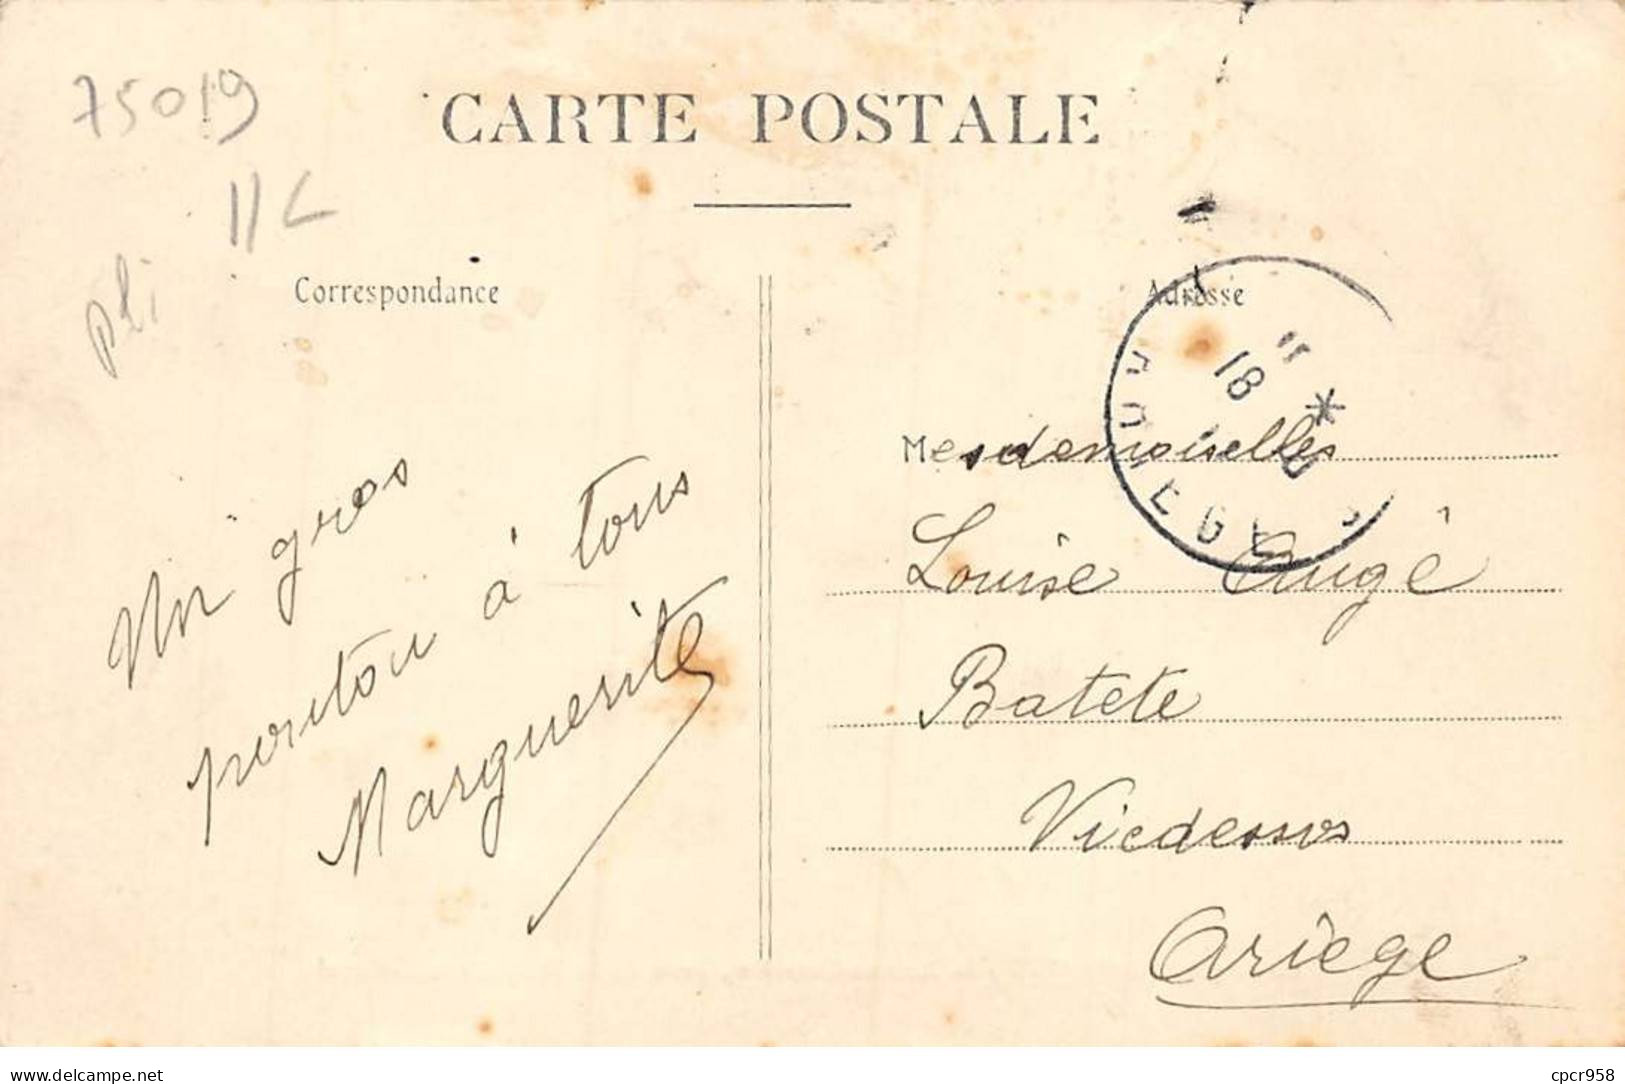 75019
11 €
pli
CARTE POSTALE
Correspondance
Adresse
18
Un gros
pouton à tous
Marguerite
Mesdemoiselles
Louise Augé
Batete
Vicdessos
Ariège
Website: https://www.delcampe.net
cpcr958